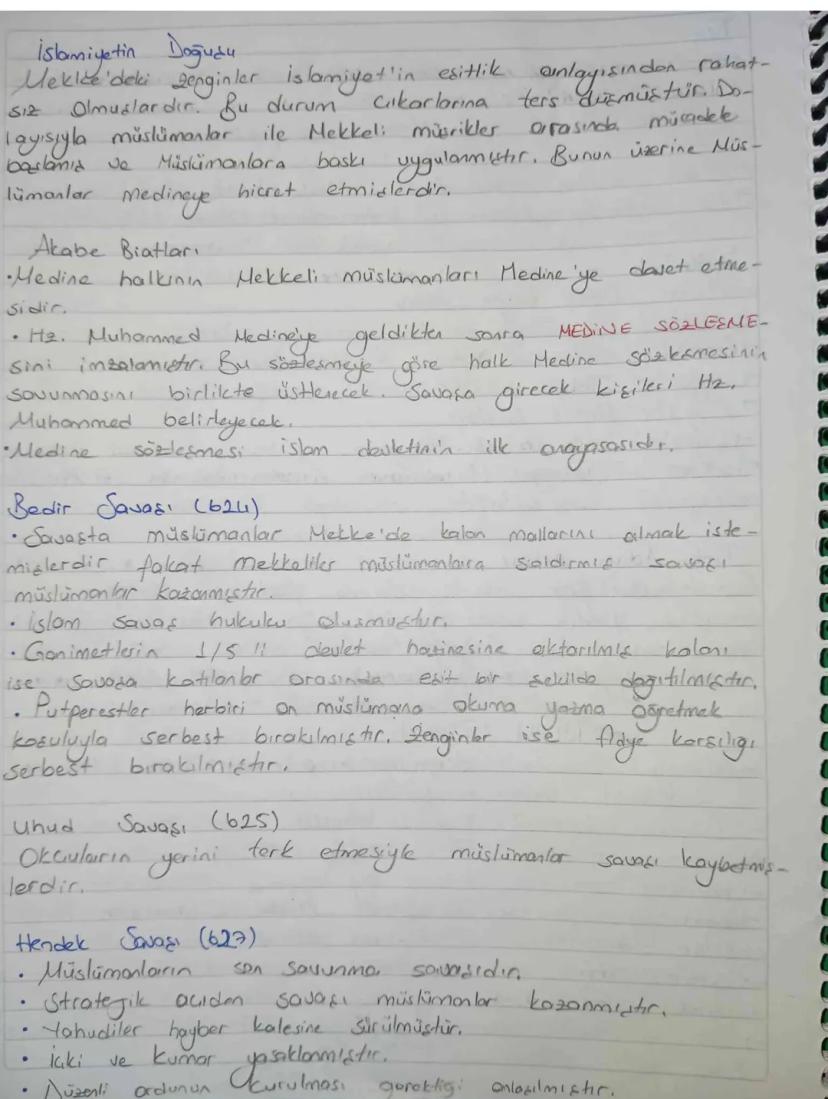 İslamiyetin Doğuşu
Mekke'deki zenginler islamiyet'in eşitlik anlayışından rahat-
sız olmuşlardır. Bu durum çıkarlarına ters düşmüştür. Do-
layısıyla müslümanlar ile Mekkeli müşrikler arasında mücadele
başlamış ve Müslümanlara baskı uygulanmıştır. Bunun üzerine Müs-
lümanlar medineye hicret etmişlerdir.
Akabe Biatları
•Medine halkının Mekkeli müslümanları Medine'ye davet etme-
sidir.
• Hz. Muhammed Medineye geldikten sonra MEDİNE SÖZLEŞME-
sini imzalamıştır. Bu sözleşmeye göre halk Medine sözleşmesinin
savunmasını birlikte üstlenecek. Savaşa girecek kişileri Hz.
Muhammed belirleyecek.
•Medine sözleşmesi islam devletinin ilk anayasasıdır.
Bedir Savaşı (624)
• Savaşta müslümanlar Mekke'de kalan mallarını almak iste-
mişlerdir fakat mekkeliler müslümanlara saldırmış savaşı
müslümanlar kazanmıştır.
• islam savaş hukuku oluşmuştur.
• Ganimetlerin 1/5'i devlet hazinesine aktarılmış kalanı
ise savaşa katılanlar arasında eşit bir şekilde dağıtılmıştır.
• Putperestler herbiri on müslümana okuma yazma öğretmek
koşuluyla serbest bırakılmıştır. Zenginler ise fidye karşılığı
serbest bırakılmıştır.
Uhud Savaşı (625)
Okçuların yerini terk etmesiyle müslümanlar savaşı kaybetmiş-
lerdir.
Hendek Savaşı (627)
• Müslümanların son savunma savaşıdır.
• Stratejik açıdan savaşı müslümanlar kazanmıştır.
• Yahudiler hayber kalesine sürülmüştür.
• içki ve kumar yasaklanmıştır.
• Düzenli ordunun kurulması gerektiği anlaşılmıştır.